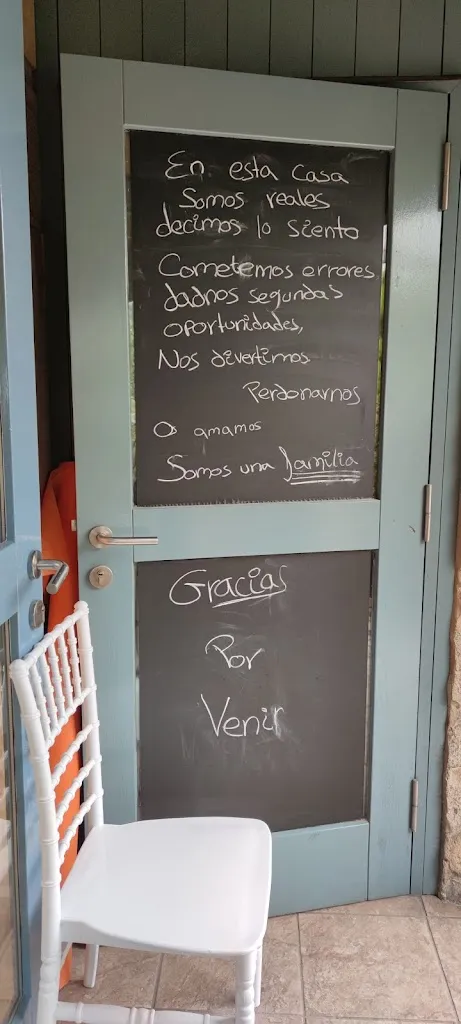 En esta casa
Somos reales
decimos lo siento
Cometemos errores
dadnos segundas
oportunidades,
Nos divertimos
Perdonarnos
Os amamos
Somos una familia
Gracias
Por
Venir